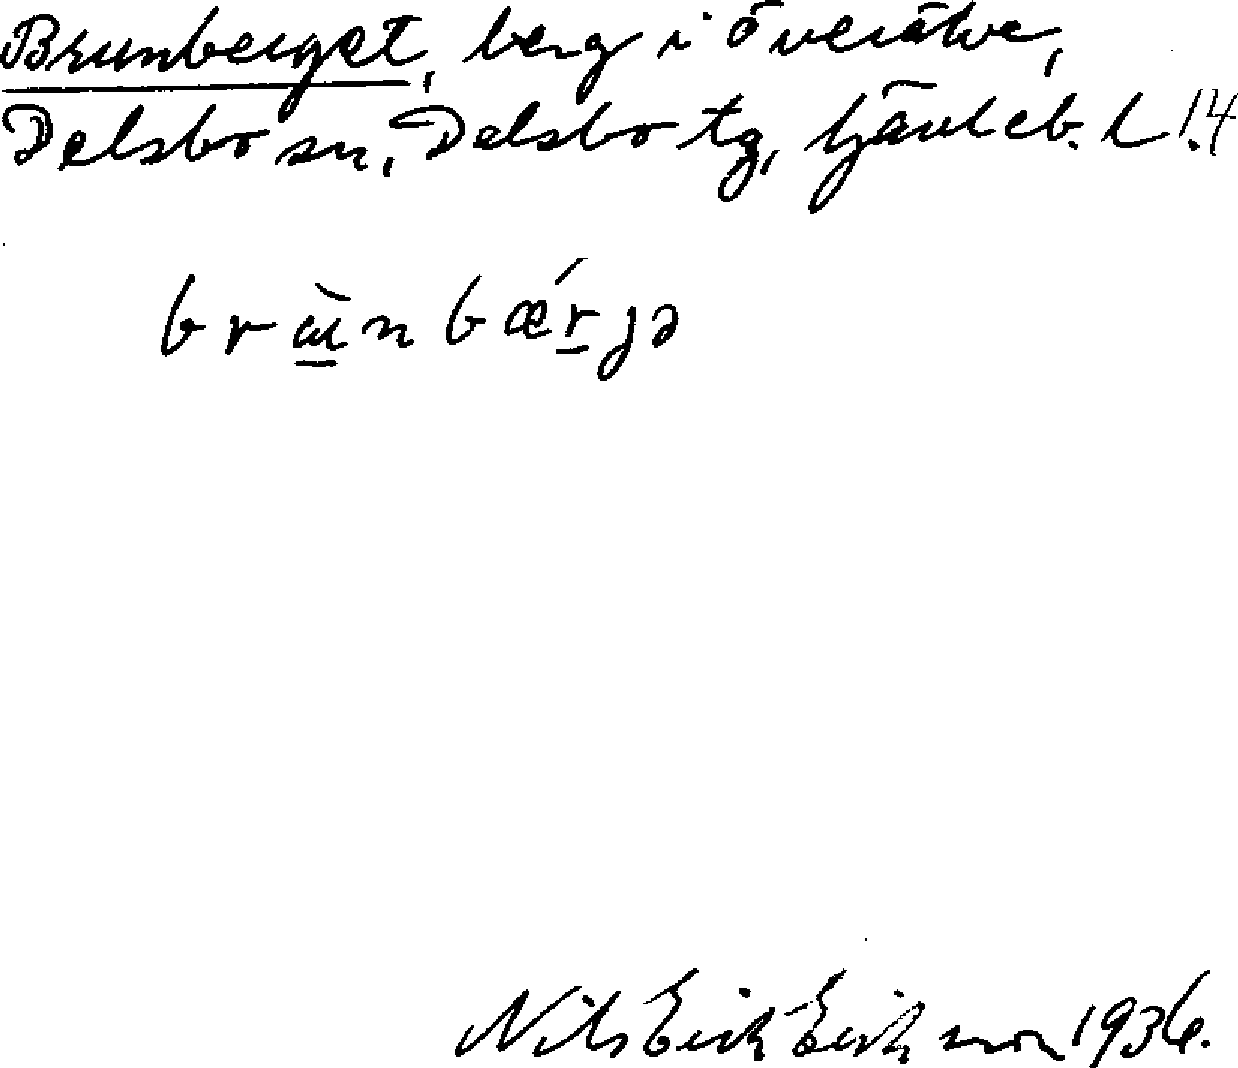 Brunberget, berg i Överälve,
Delsbo sn, Delsbo tg, Gävleb. l 14
brùnbǽrjə
Nils Erik Eriksson 1936.